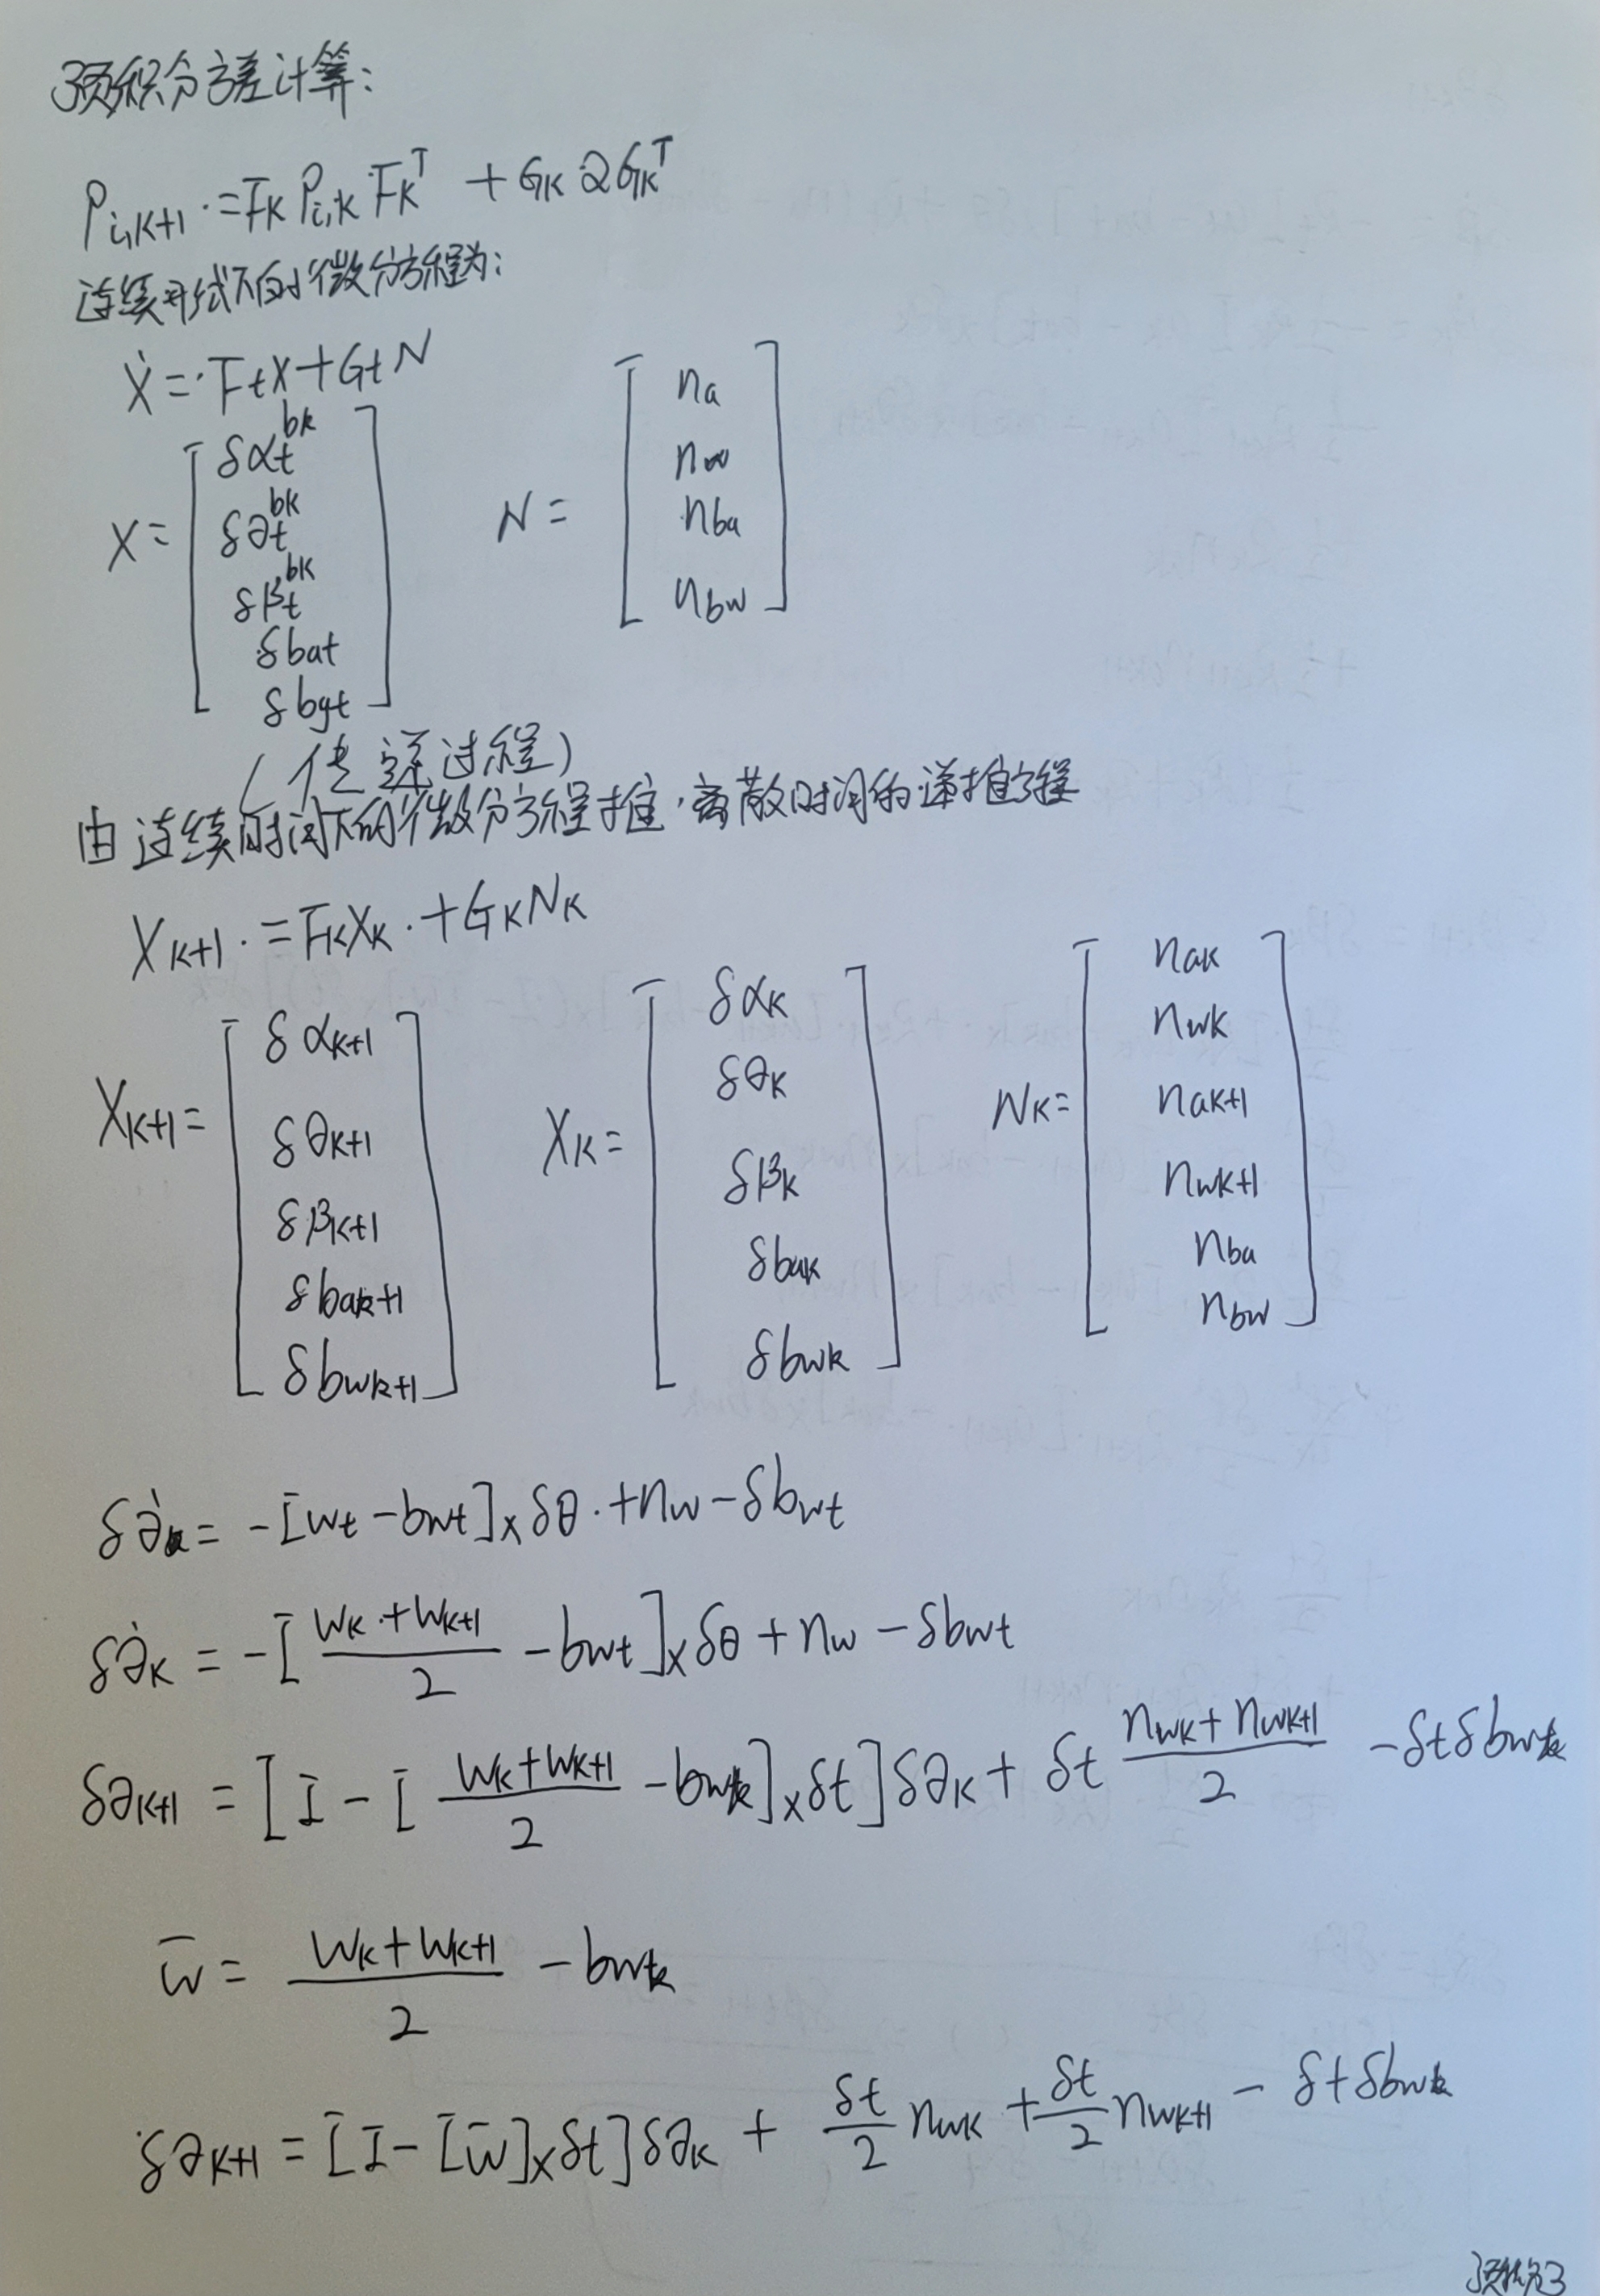 预积分方差计算:
P_{i,k+1} = F_k P_{i,k} F_k^T + G_k Q G_k^T
连续形式下的微分方程为:
Ẋ = F_t X + G_t N
X = [δα_t^{bk} δθ_t^{bk} δβ_t^{bk} δb_{at} δb_{gt}] N = [n_a n_w n_{ba} n_{bw}]
(传递过程)
由连续时间下的微分方程推离散时间的递推方程
X_{k+1} = F_k X_k + G_k N_k
X_{k+1} = [δα_{k+1} δθ_{k+1} δβ_{k+1} δb_{ak+1} δb_{wk+1}] X_k = [δα_k δθ_k δβ_k δb_{ak} δb_{wk}] N_k = [n_{ak} n_{wk} n_{ak+1} n_{wk+1} n_{ba} n_{bw}]
δθ̇ = -[w_t - b_{wt}]_× δθ + n_w - δb_{wt}
δθ̇_k = -[(w_k + w_{k+1})/2 - b_{wt}]_× δθ + n_w - δb_{wt}
δθ_{k+1} = [I - [(w_k + w_{k+1})/2 - b_{wk}]_× δt] δθ_k + δt (n_{wk} + n_{wk+1})/2 - δt δb_{wk}
w̄ = (w_k + w_{k+1})/2 - b_{wk}
δθ_{k+1} = [I - [w̄]_× δt] δθ_k + δt/2 n_{wk} + δt/2 n_{wk+1} - δt δb_{wk}
预积分3